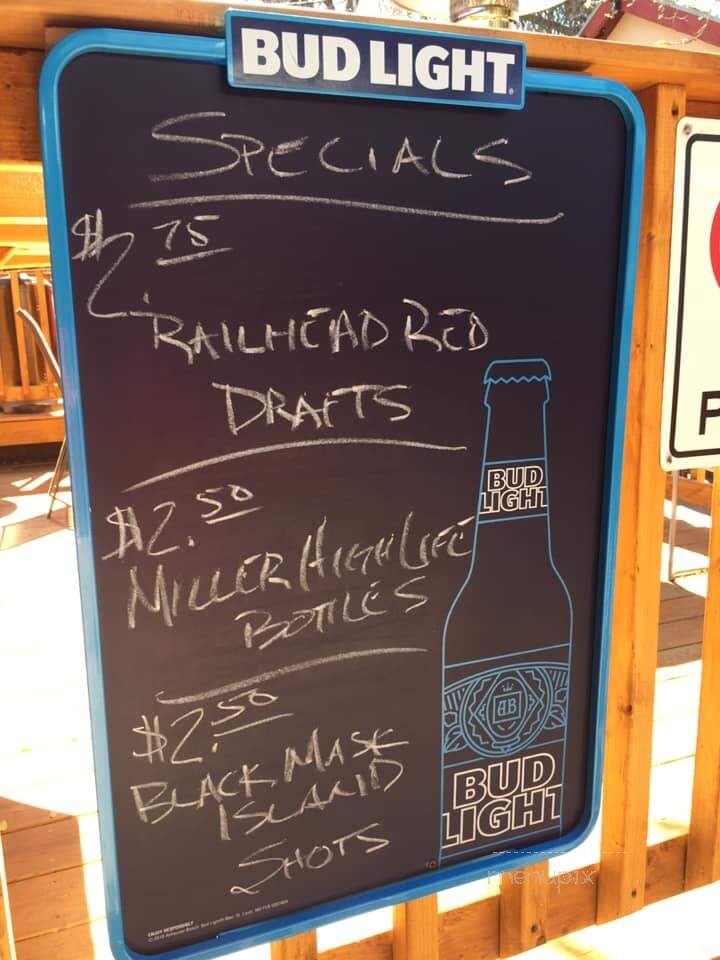 BUD LIGHT
SPECIALS
$2.75
RAILHEAD RED
DRAFTS
$2.50
MILLER HIGH LIFE
BOTTLES
$2.50
BLACK MASK
ISLAND
SHOTS
BUD
LIGHT
AB
BUD
LIGHT
P
ENJOY RESPONSIBLY
menupix